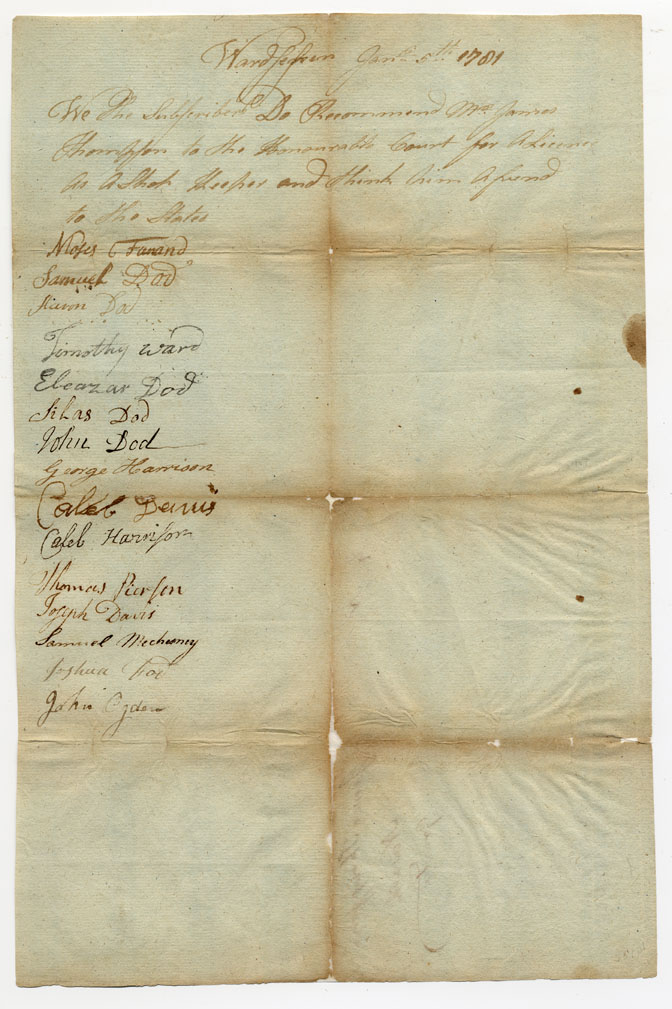 Wardsesson Janry 5th 1781
We The Subscribers Do Recommend Mr James
Thompson to the Honourable Court for A Licence
As A Shop Keeper and think him A frend
to the States
Moses Farand
Samuel Dod
Dod
Timothy Ward
Eleazar Dod
Silas Dod
John Dod
George Harrison
Caleb Davis
Caleb Harrison
Thomas Pierson
Joseph Davis
Samuel Mechesney
Joshua Dod
John Ogden